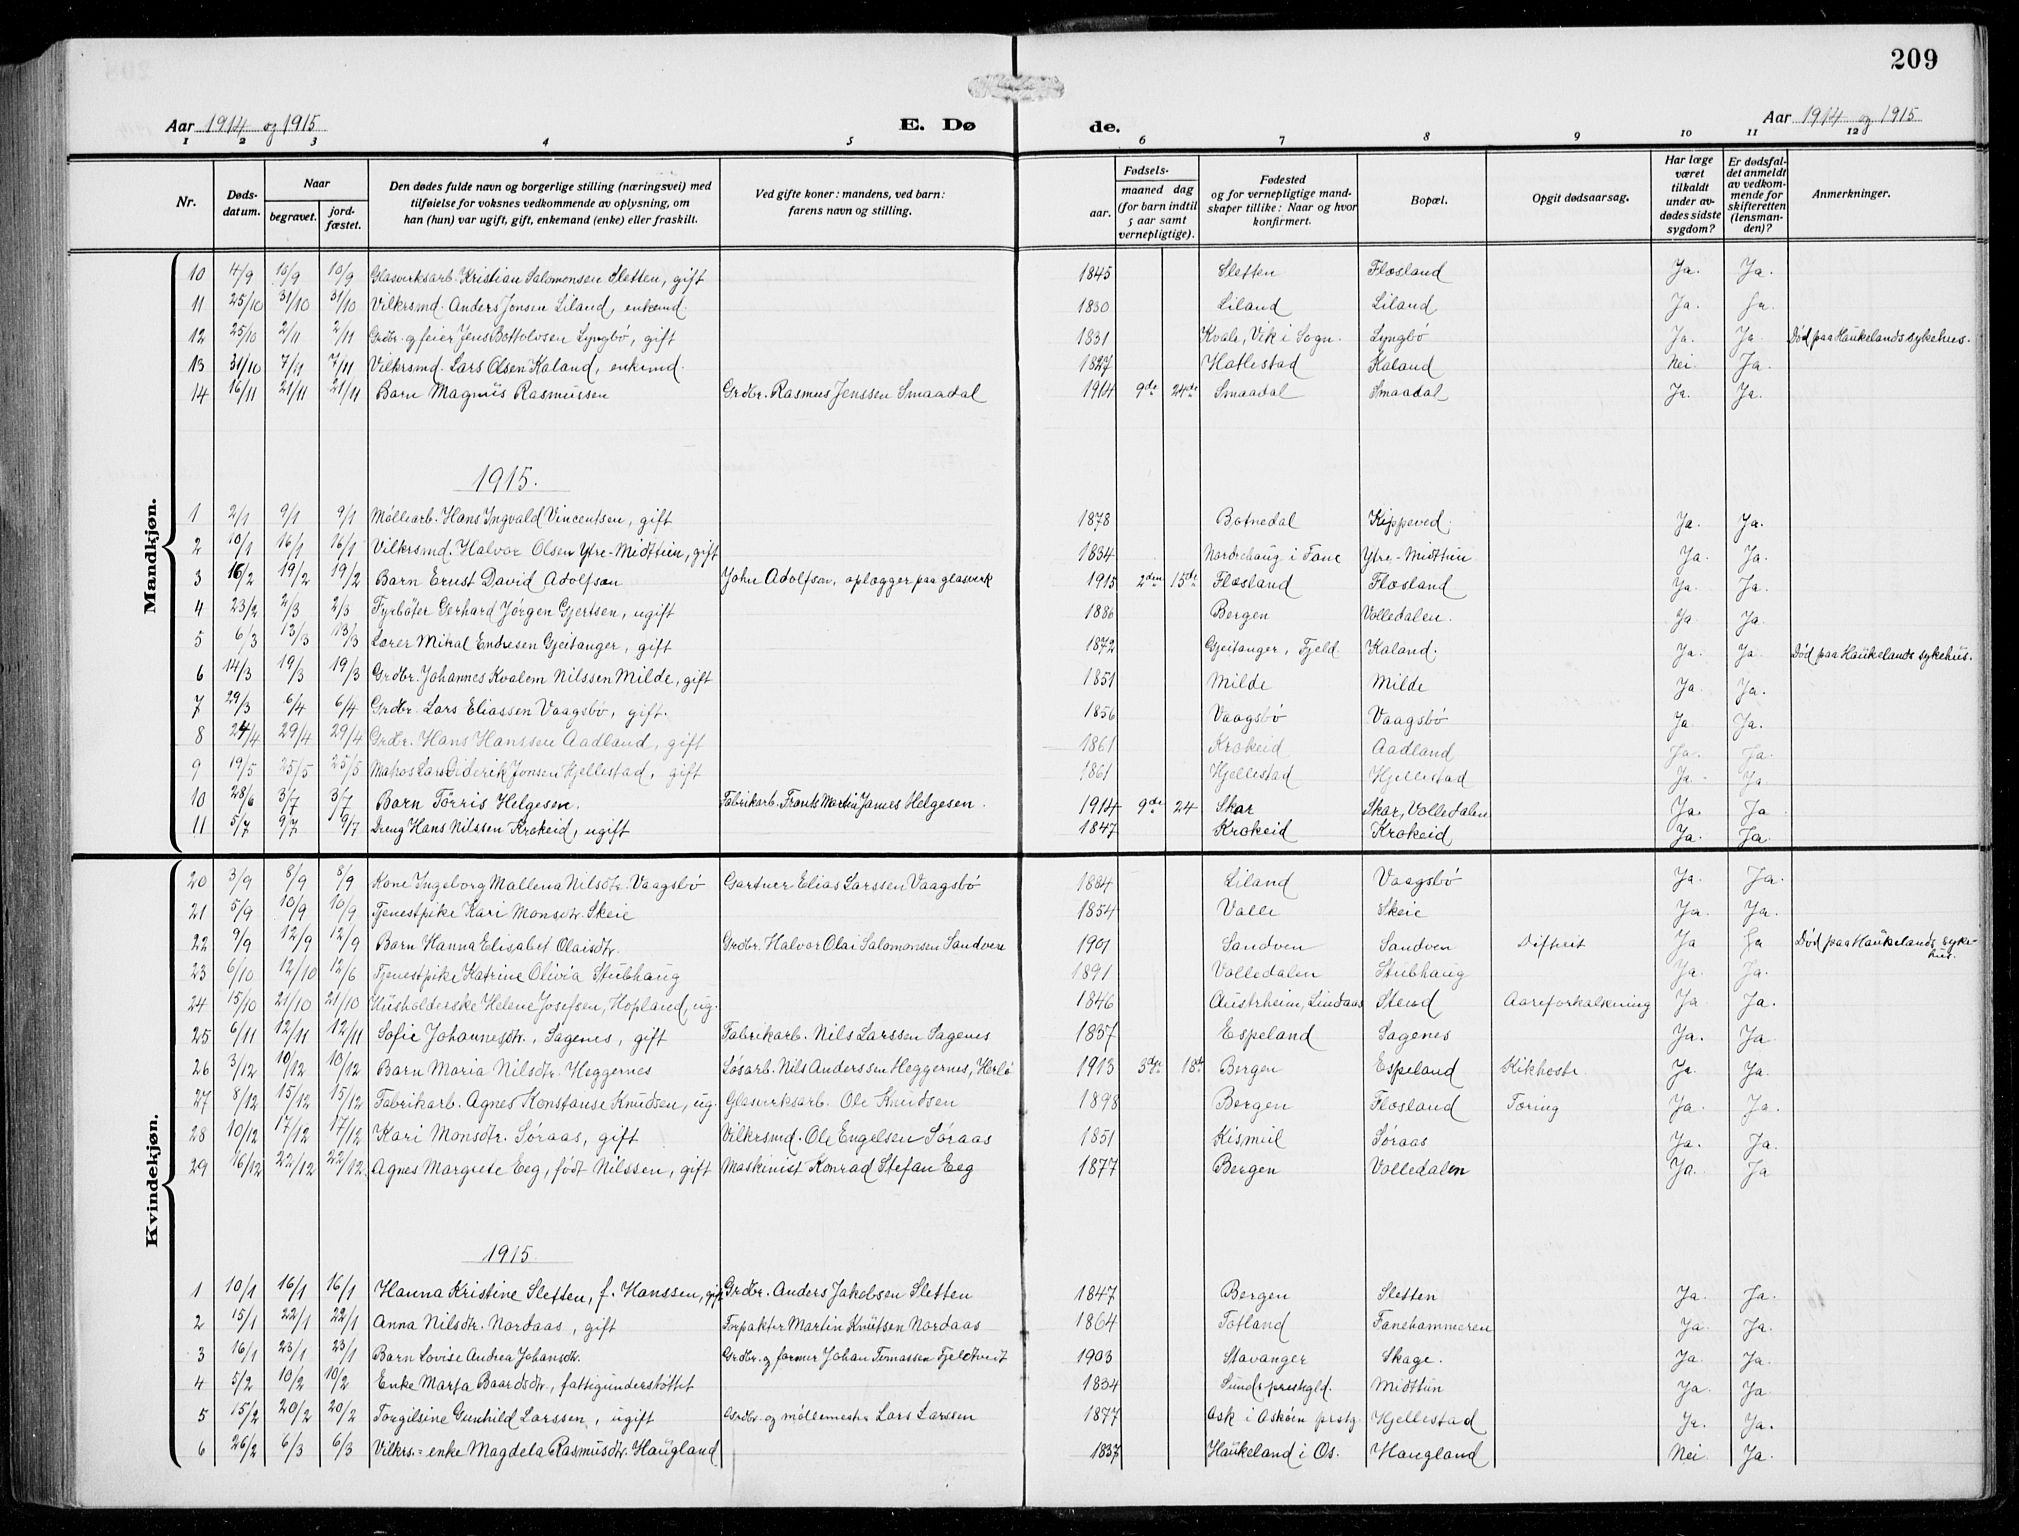 209
Aar 1914 og 1915 E. Dø de. Aar 1914 og 1915
1 2 3 4 5 6 7 8 9 10 11 12
Nr. Dødsdatum. Naar begravet. jordfæstet. Den dødes fulde navn og borgerlige stilling (næringsvei) med tilføielse for voksnes vedkommende av oplysning, om han (hun) var ugift, gift, enkemand (enke) eller fraskilt. Ved gifte koner: mandens, ved barn: farens navn og stilling. Fødsels- aar. maaned dag (for barn indtil 5 aar samt vernepligtige). Fødested og for vernepligtige mandskaper tillike: Naar og hvor konfirmert. Bopæl. Opgit dødsaarsag. Har læge været tilkaldt under avdødes sidste sygdom? Er dødsfaldet anmeldt av vedkommende for skifteretten (lensmanden)? Anmerkninger.
Mandkjøn.
10 4/9 10/9 10/9 Glasverksarb. Kristian Salomonsen Sletten, gift 1845 Sletten Flæsland Ja. Ja.
11 25/10 31/10 31/10 Vilkrsmd. Anders Jonsen Liland, enkemd. 1830 Liland Liland Ja. Ja.
12 25/10 2/11 2/11 Grdbr. og feier Jens Bottolvsen Lyngbø, gift 1831 Kvale, Vik i Sogn. Lyngbø Ja. Ja. Død paa Haukelands sykehus.
13 31/10 7/11 7/11 Vilkrsmd. Lars Olsen Kaland, enkemd. 1827 Hatlestad Kaland Nei. Ja.
14 16/11 21/11 21/11 Barn Magnus Rasmussen Grdbr. Rasmus Jenssen Smaadal 1914 9de 24de Smaadal Smaadal Ja. Ja.
1915.
1 2/1 9/1 9/1 Møllearb. Hans Ingvald Vincentsen, gift 1878 Botnedal Kippeved. Ja. Ja.
2 10/1 16/1 16/1 Vilkrsmd. Halvor Olsen Ytre-Midttun, gift 1834 Nordrehaug i Fane Ytre-Midttun Ja. Ja.
3 16/2 19/2 19/2 Barn Ernst David Adolfson John Adolfson, oplægger paa glasverk 1915 2den 15de Flæsland Flæsland Ja. Ja.
4 23/2 2/3 2/3 Fyrbøter Gerhard Jørgen Gjertsen, ugift 1886 Bergen Volledalen. Ja Ja.
5 6/3 13/3 13/3 Lærer Mikal Endresen Gjeitanger, gift 1872 Gjeitanger, Fjeld Kaland. Ja. Ja Død paa Haukelands sykehus.
6 14/3 19/3 19/3 Grdbr. Johannes Kvalem Nilssen Milde, gift 1851 Milde Milde Ja. Ja.
7 29/3 6/4 6/4 Grdbr. Lars Eliassen Vaagsbø, gift. 1856 Vaagsbø Vaagsbø Ja. Ja.
8 24/4 29/4 29/4 Grdbr. Hans Hanssen Aadland, gift 1861 Krokeid Aadland Ja. Ja.
9 19/5 25/5 25/5 Matros Lars Diderik Jonsen Hjellestad, gift 1861 Hjellestad Hjellestad Ja. Ja
10 28/6 3/7 3/7 Barn Tørris Helgesen. Fabrikarb. Frants Martin James Helgesen. 1914 9de 24 Skar Skar, Volledalen Ja. Ja
11 5/7 9/7 9/7 Dreng Hans Nilssen Krokeid, ugift 1847 Krokeid Krokeid Ja. Ja.
Kvindekjøn.
20 3/9 8/9 8/9 Kone Ingeborg Mallena Nilsdtr. Vaagsbø Gartner Elias Larssen Vaagsbø 1884 Liland Vaagsbø Ja. Ja.
21 5/9 10/9 10/9 Tjenestpike Kari Monsdtr. Skeie 1854 Valle Skeie Ja. Ja.
22 9/9 12/9 12/9 Barn Hanna Elisabet Olaisdtr. Grdbr. Halvor Olai Salomonsen Sandven 1901 Sandven Sandven Difterit Ja Ja Død paa Haukelands sykehus.
23 6/10 12/10 12/6 Tjenestpike Katrine Olivia Stubhaug 1891 Volledalen Stubhaug Ja. Ja.
24 15/10 21/10 21/10 Husholderske Helene Josefsen, Hopland, ug. 1846 Austrheim, Lindaas Stend Aareforkalkning Ja Ja.
25 6/11 12/11 12/11 Sofie Johannesdtr., Sagenes, gift Fabrikarb. Nils Larssen Sagenes 1837 Espeland Sagenes Ja. Ja
26 3/12 10/12 10/12 Barn Maria Nilsdtr. Heggernes Løsarb. Nils Anderssen Heggernes, Herlø 1913 3dje 18de Bergen Espeland Kikhoste. Ja. Ja.
27 8/12 15/12 15/12 Fabrikarb. Agnes Konstanse Knudsen, ug. Glasverksarb. Ole Knudsen 1898 Bergen Flæsland Tæring Ja. Ja.
28 10/12 17/12 17/12 Kari Monsdtr. Søraas, gift Vilkrsmd. Ole Engelsen Søraas 1851 Kismul Søraas Ja. Ja.
29 16/12 22/12 22/12 Agnes Margrete Eeg, født Nilssen, gift Maskinist Konrad Stefan Eeg 1877 Bergen Volledalen Ja. Ja
1915.
1 10/1 16/1 16/1 Hanna Kristine Sletten, f. Hanssen, gift Grdbr. Anders Jakobsen Sletten 1847 Bergen Sletten Ja. Ja.
2 15/1 22/1 22/1 Anna Nilsdtr. Nordaas, gift Forpakter Martin Knutsen Nordaas 1864 Totland Fanehammeren Ja. Ja.
3 16/1 23/1 23/1 Barn Lovise Andrea Johansdtr. Grdbr. og former Johan Tomassen Fjeldtveit 1903 Stavanger Skage. Ja. Ja.
4 5/2 10/2 10/2 Enke Marta Baardsdtr., fattigunderstøttet 1834 Sunds prestgld. Midttun Ja. Ja.
5 15/2 20/2 20/2 Torgilsine Gunhild Larssen, ugift Grdbr. og møllemester Lars Larssen 1877 Ask i Askøen prstg. Hjellestad Ja. Ja.
6 26/2 6/3 6/3 Vilkrs.=enke Magdela Rasmusdtr. Haugland 1837 Haukeland i Os. Haugland Nei Ja.